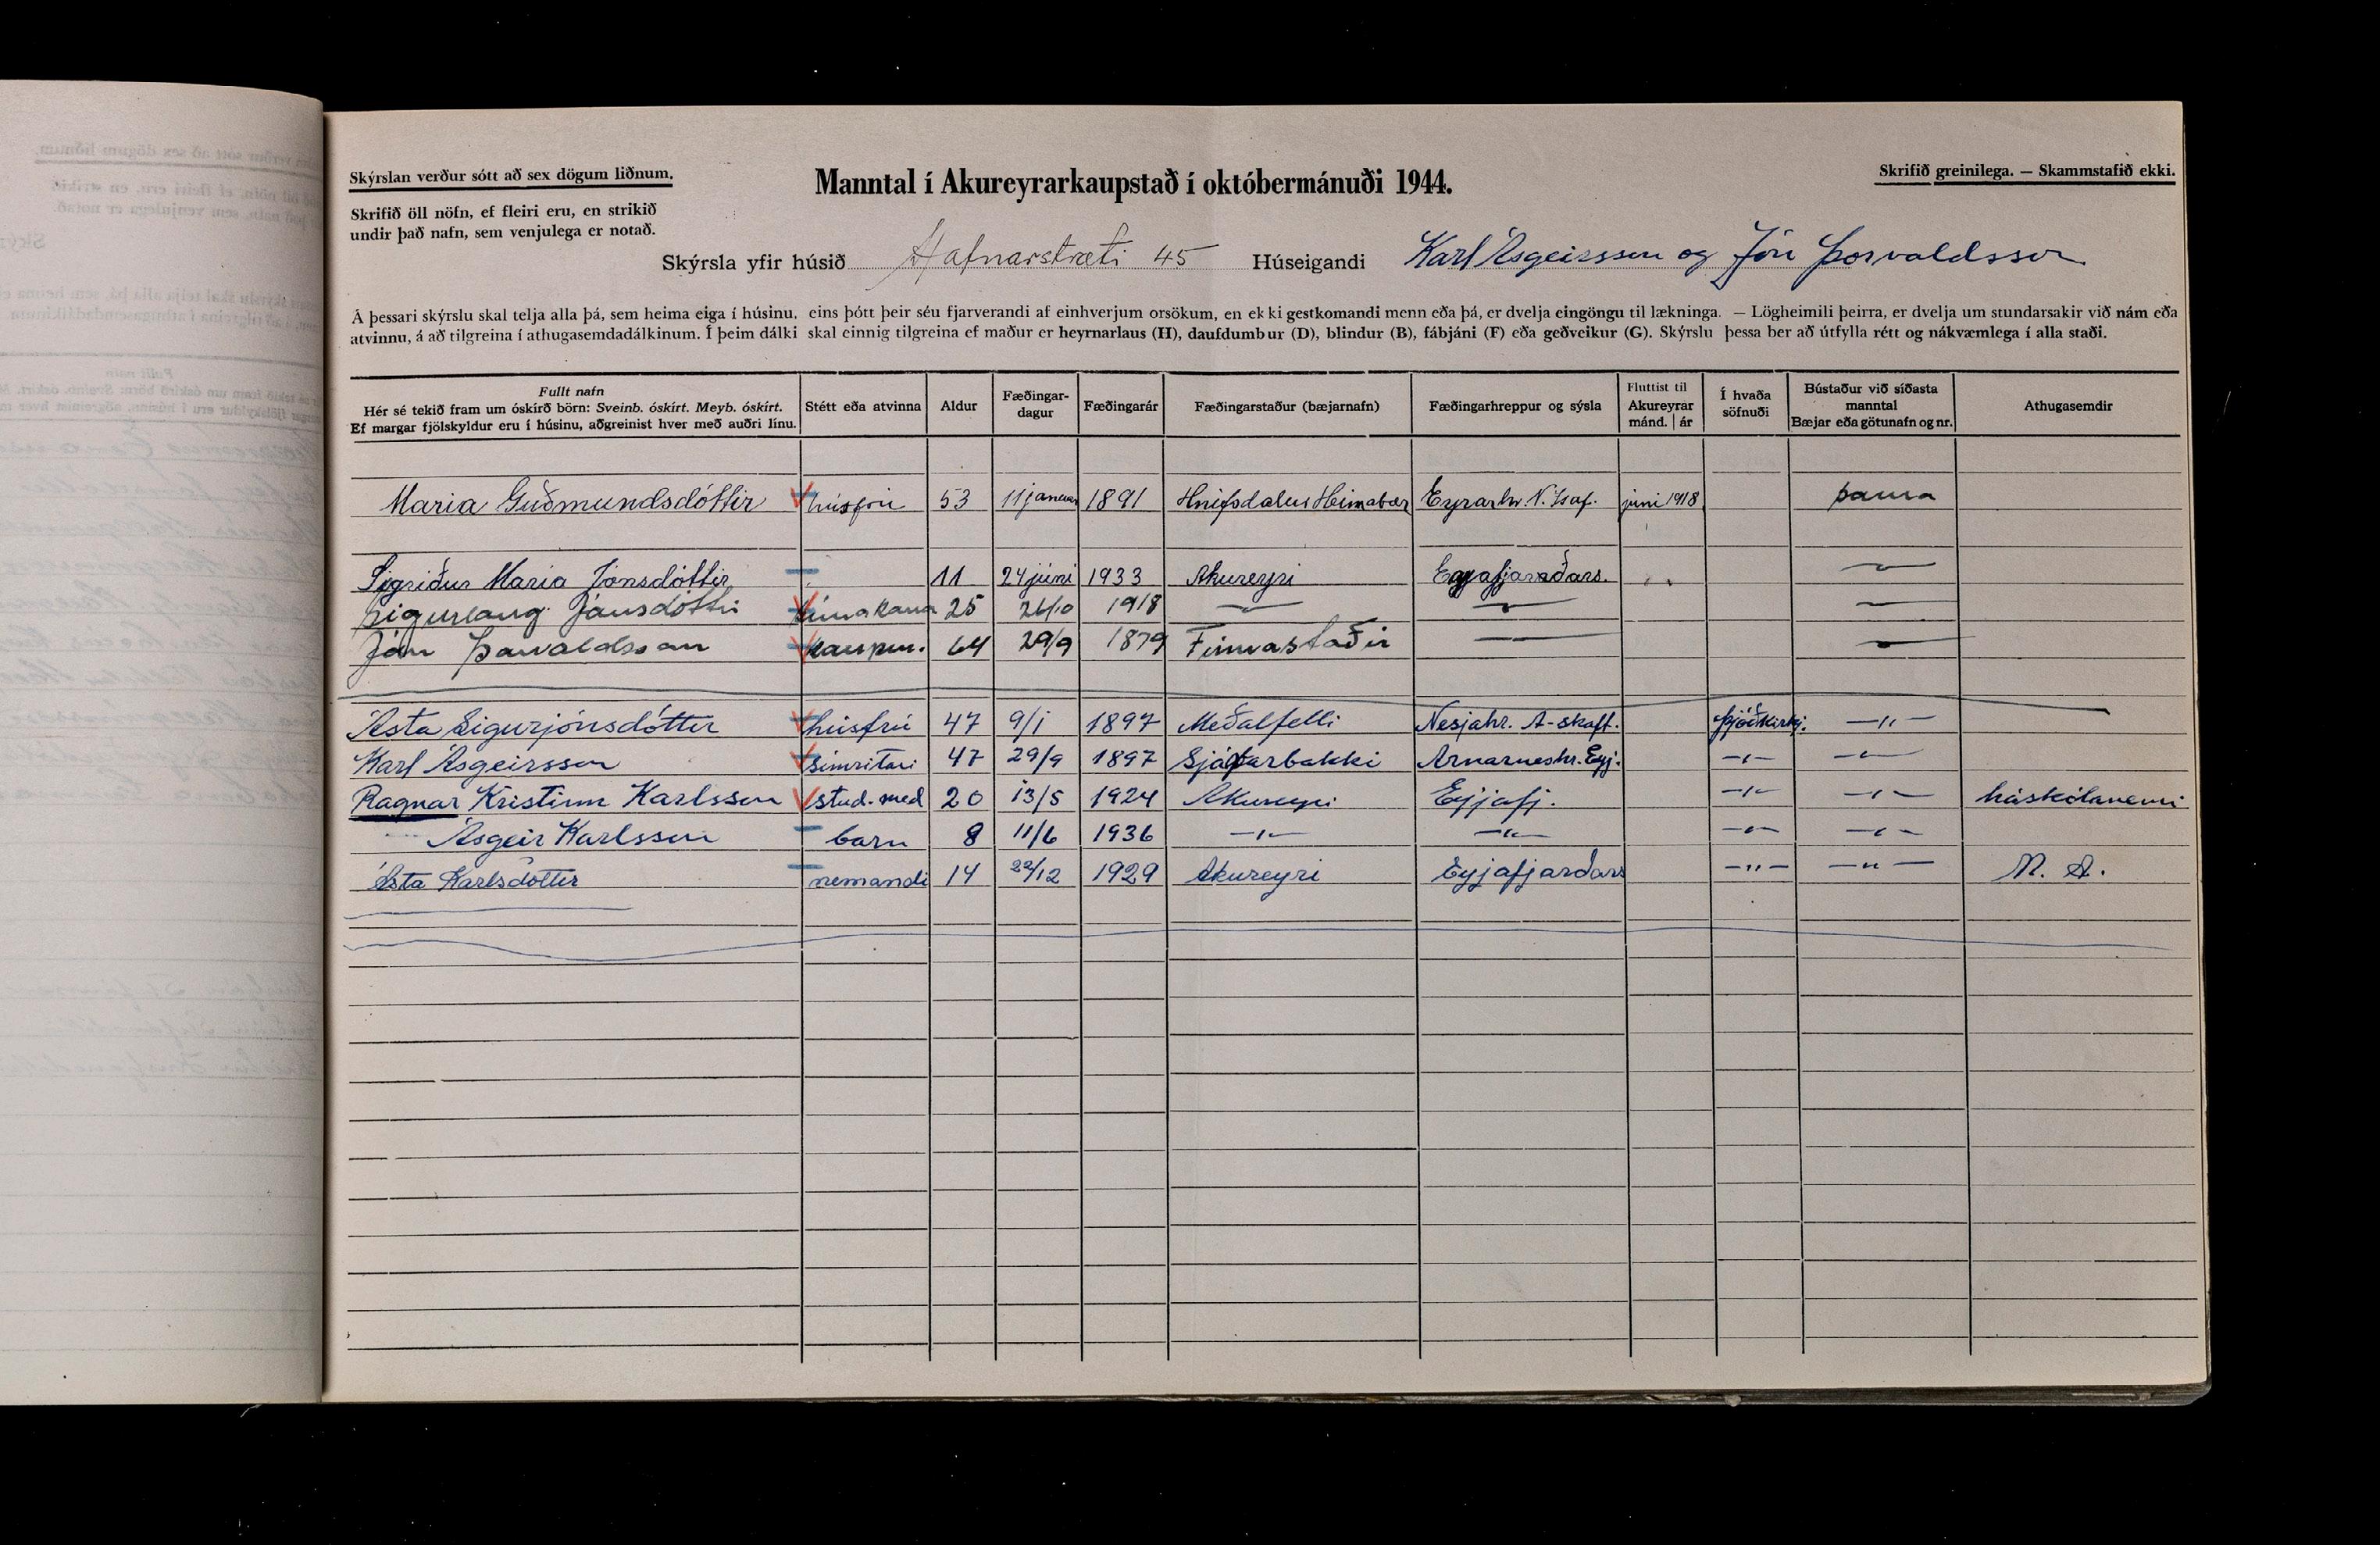 Skýrslan verður sótt að sex dögum liðnum.
Manntal í Akureyrarkaupstað í októbermánuði 1944.
Skrifið greinilega. — Skammstafið ekki.
Skrifið öll nöfn, ef fleiri eru, en strikið
undir það nafn, sem venjulega er notað.
Skýrsla yfir húsið Hafnarstræti 45 Húseigandi Karl Ásgeirsson og Jón Þorvaldsson
Á þessari skýrslu skal telja alla þá, sem heima eiga í húsinu, eins þótt þeir séu fjarverandi af einhverjum orsökum, en ekki gestkomandi menn eða þá, er dvelja eingöngu til lækninga. — Lögheimili þeirra, er dvelja um stundarsakir við nám eða
atvinnu, á að tilgreina í athugasemdadálkinum. Í þeim dálki skal einnig tilgreina ef maður er heyrnarlaus (H), daufdumbur (D), blindur (B), fábjáni (F) eða geðveikur (G). Skýrslu þessa ber að útfylla rétt og nákvæmlega í alla staði.
Fullt nafn
Hér sé tekið fram um óskírð börn: Sveinb. óskírt. Meyb. óskírt.
Ef margar fjölskyldur eru í húsinu, aðgreinist hver með auðri línu.
Stétt eða atvinna
Aldur
Fæðingar-
dagur
Fæðingarár
Fæðingarstaður (bæjarnafn)
Fæðingarhreppur og sýsla
Fluttist til
Akureyrar
mánd. | ár
Í hvaða
söfnuði
Bústaður við síðasta
manntal
Bæjar eða götunafn og nr.
Athugasemdir
Maria Guðmundsdóttir húsfrú 53 11 januar 1891 Hnífsdalur Heimabær Eyrarhr. N. Ísaf. juni 1918 sama
Sigríður Maria Jónsdóttir 11 24 júní 1933 Akureyri Eyjafjarðars. —
Sigurlaug Jónsdóttir 25 26/10 1918 — — —
Jón Þorvaldsson kaupm. 64 29/9 1879 Finnastaðir — —
Ásta Sigurjónsdóttir húsfrú 47 9/1 1897 Meðalfelli Nesjahr. A-skaft. þjóðkirkj. —"—
Karl Ásgeirsson símritari 47 29/9 1897 Sjávarbakki Arnarneshr. Eyj. —"— —"—
Ragnar Kristinn Karlsson stud. med 20 13/5 1924 Akureyri Eyjafj. —"— —"— háskólanemi
Ásgeir Karlsson barn 8 11/6 1936 —"— —"— —"— —"—
Ásta Karlsdóttir nemandi 14 22/12 1929 Akureyri Eyjafjarðars —"— —"— M. A.